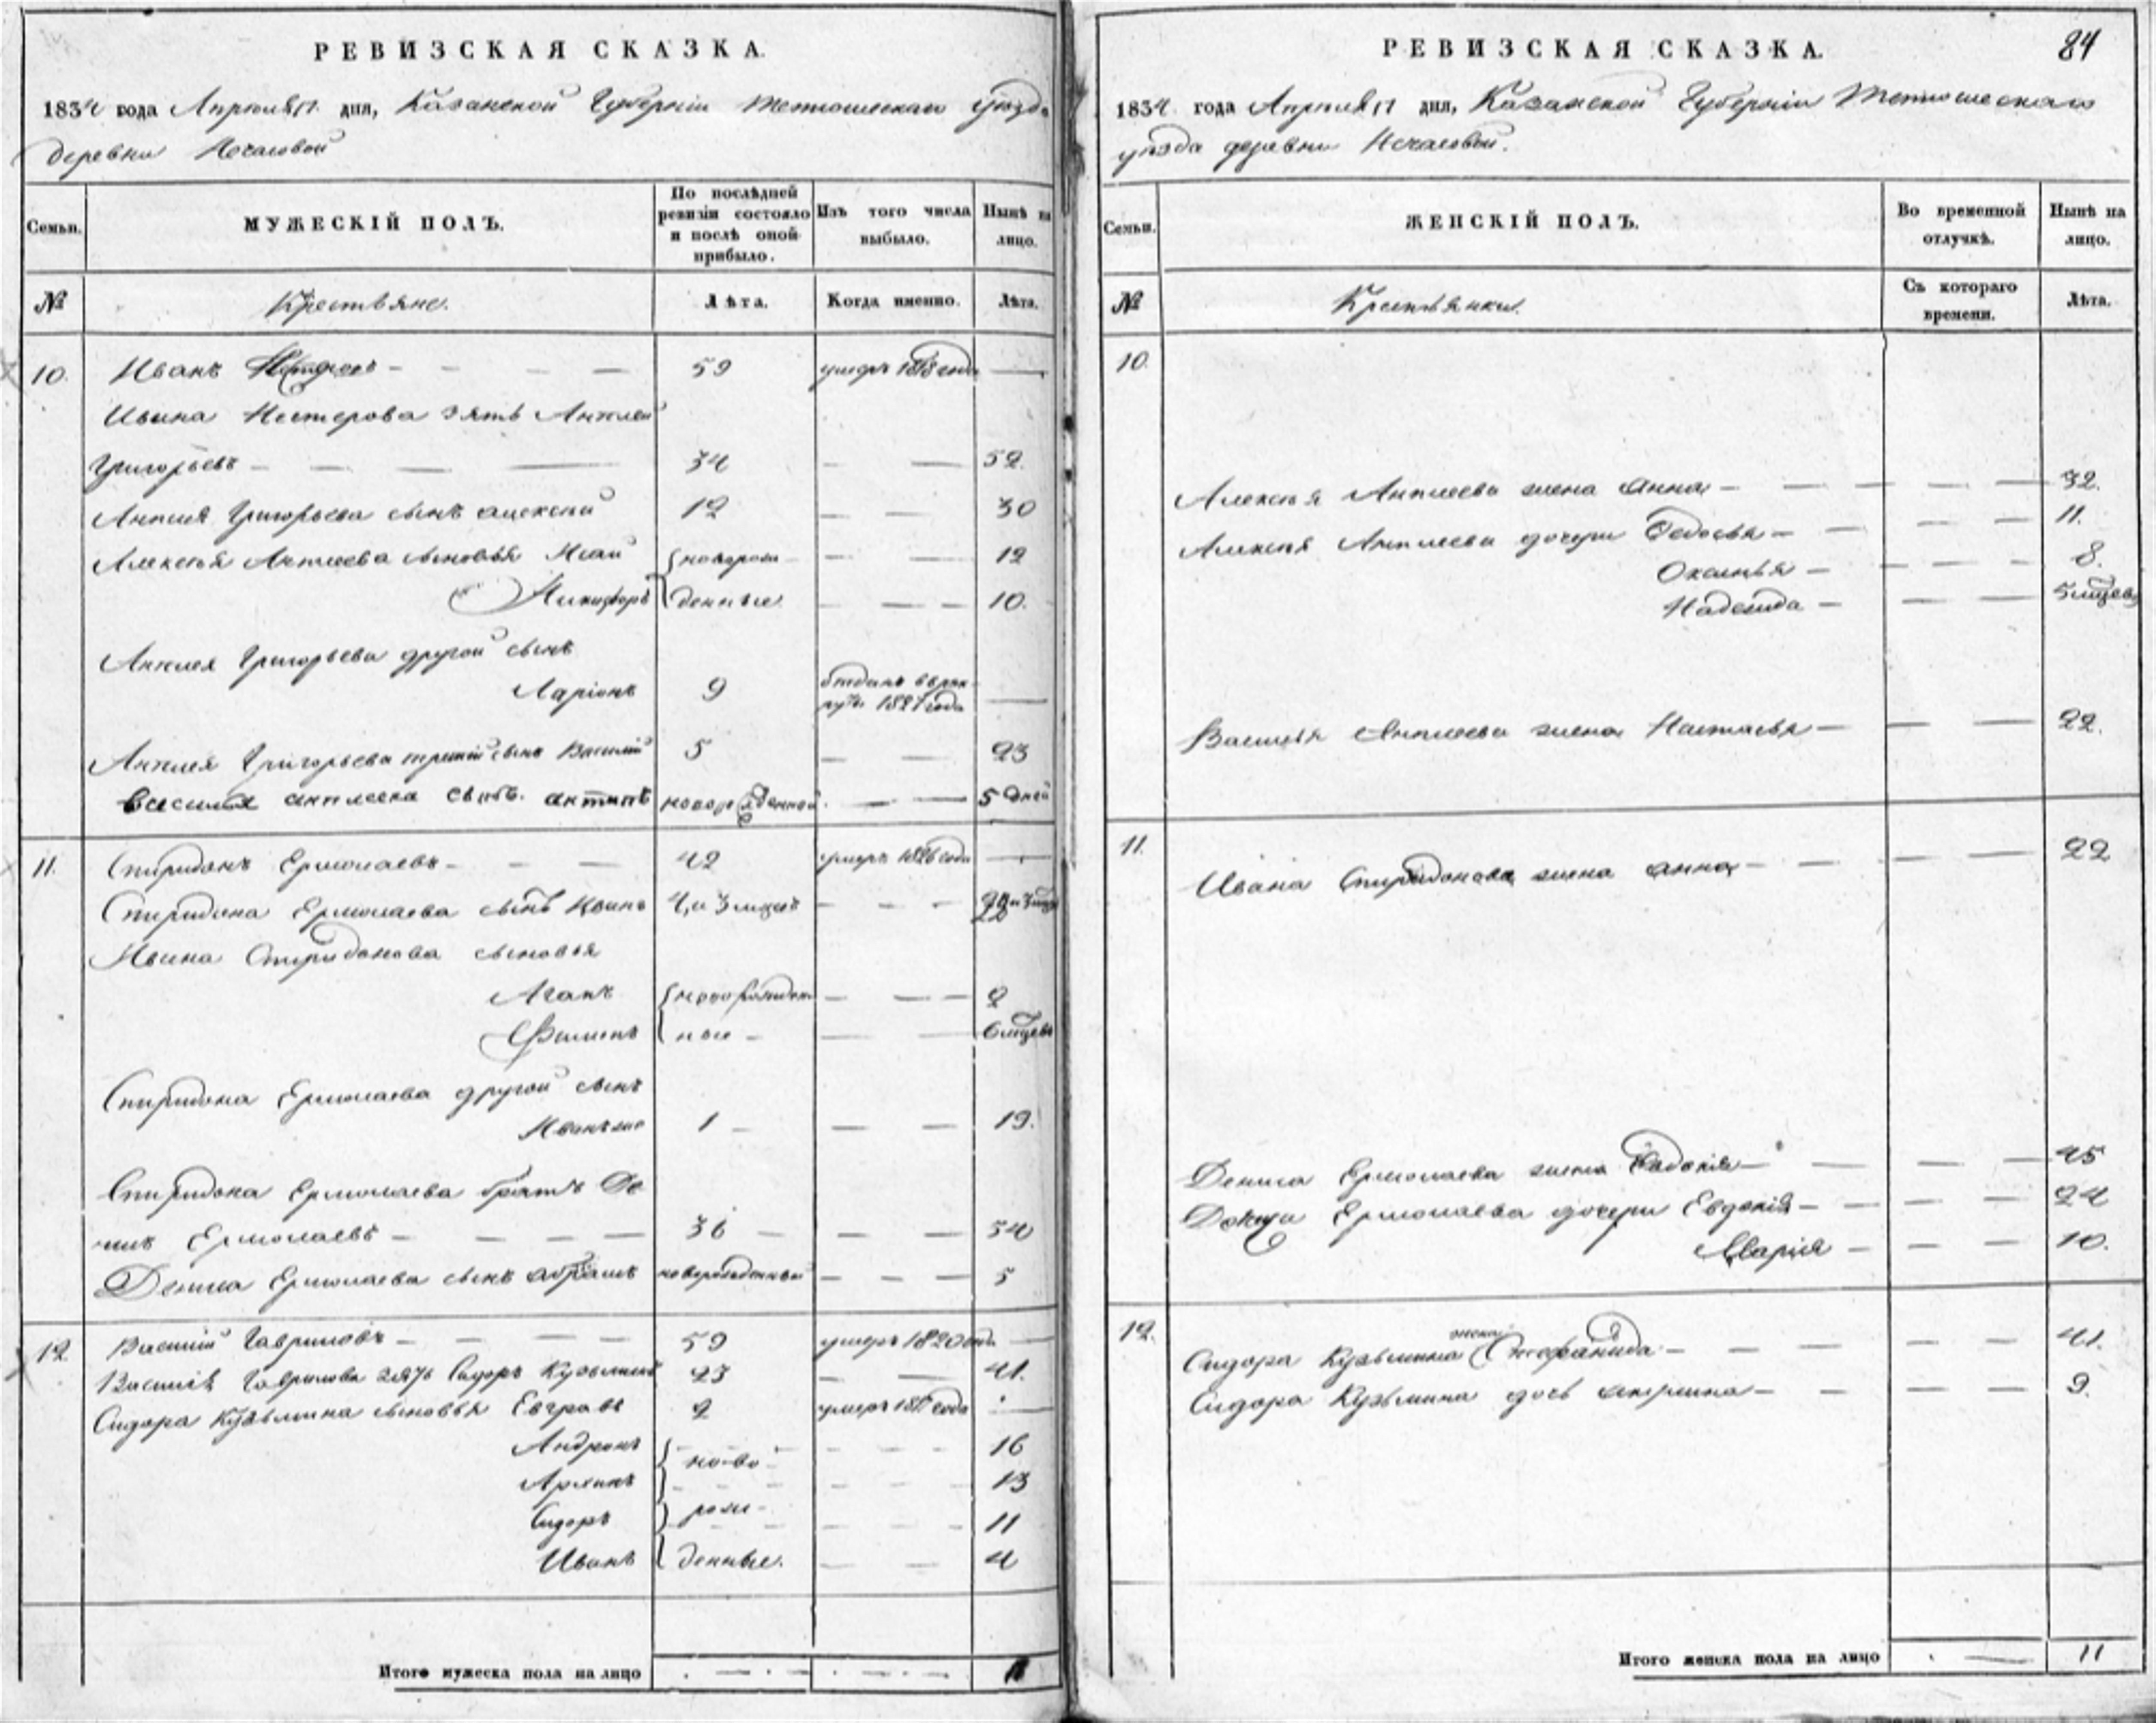 РЕВИЗСКАЯ СКАЗКА.
1834 года Апреля 17 дня, Казанской Губерніи Тетюшскаго уезда
деревни Нечасовой
Семьи.
МУЖЕСКІЙ ПОЛЪ.
По послѣдней ревизіи состояло и послѣ оной прибыло.
Изъ того числа выбыло.
Нынѣ на лицо.
№
Крестьяне.
Лѣта.
Когда именно.
Лѣта.
10. Иванъ 59 умеръ 1818 года
Ивана Нестерова зять Антипей
Григорьевъ 34 52.
Григорьева сынъ алексей 12 30
Алексея сыновья Исай новорож 12
Никифоръ денные 10.
Григорьева другой сынъ
Ларіонъ 9 отданъ в рек-
руты 1827 года
Григорьева третій сынъ Василій 5 23
Василя сынъ. антипъ новорожденной. 5 дней
11. Спиридонъ Ермолаевъ 42 умеръ 1826 года
Спиридона Ермолаева сынъ Иванъ 4, и 3 мцовъ 22
Ивана Спиридонова сыновья
Агапъ новорожден 2
Филипъ ные 6 мцевъ
Спиридона Ермолаева другой сынъ
Иванъ же 1 19.
Спиридона Ермолаева братъ Де
нисъ Ермолаевъ 36 54
Дениса Ермолаева сынъ абрамъ новорожденный 5
12 Василій Гавриловъ 59 умеръ 1820 года
Василія Гаврилова зять Сидоръ Кузьминъ 23 41.
Сидора Кузьмина сыновья Евграфъ 2 умеръ года
Андронъ 16
ново
13
Сидоръ рож- 11
Иванъ денные. 4
Итого мужеска пола на лицо
РЕВИЗСКАЯ СКАЗКА.
84
1834 года Апреля 17 дня, Казанской Губерніи Тетюшскаго
уезда деревни Нечасовой.
Семьи.
ЖЕНСКІЙ ПОЛЪ.
Во временной отлучкѣ.
Нынѣ на лицо.
№
Крестьянки.
Съ котораго времени.
Лѣта.
10.
Алексея жена Анна 32.
Алексея дочери Федосья 11.
Оксинья 8.
Надежда 5 мцевъ
Василья жена Настасья 22.
11.
Ивана Спиридонова жена анна 22
Дениса Ермолаева жена 45
Дениса Ермолаева дочери Евдокія 24
Марія 10.
12.
жена
Сидора Кузьмина Стефанида 41.
Сидора Кузьмина дочь 9.
Итого женска пола на лицо 11